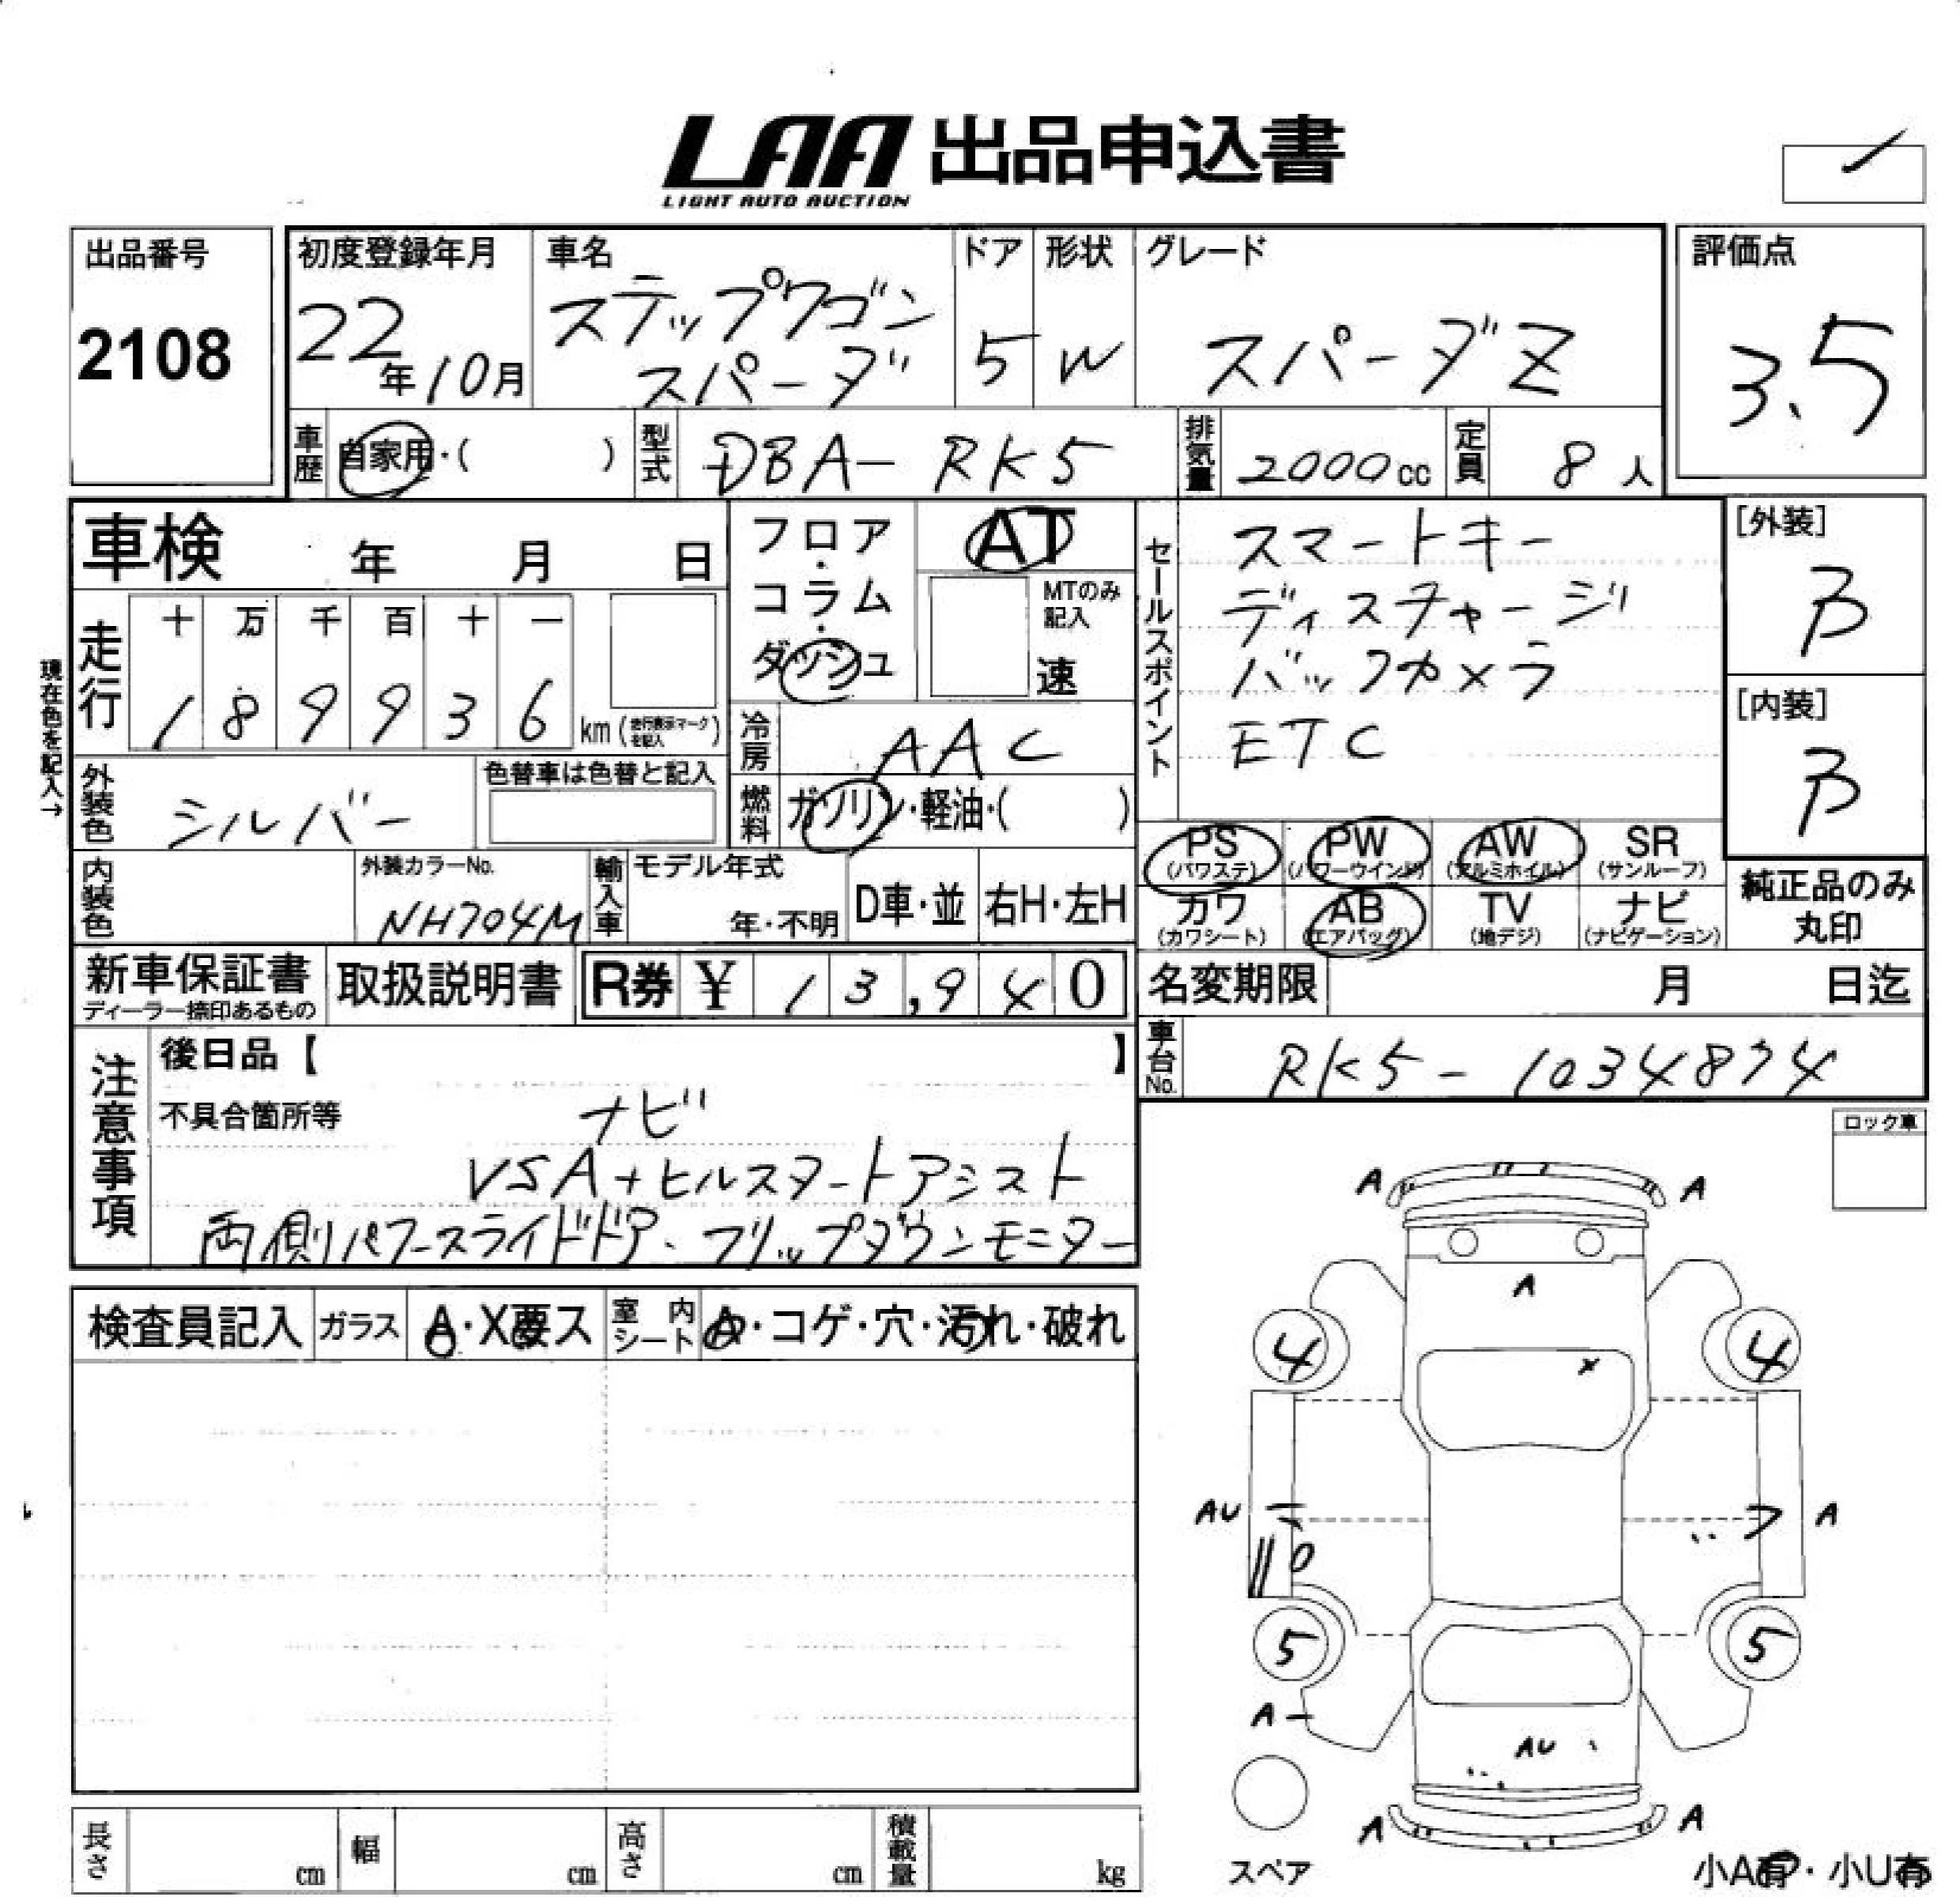 LAA 出品申込書
LIGHT AUTO AUCTION
出品番号
2108
初度登録年月
22年10月
車名
ステップワゴン
スパーダ
ドア
5
形状
W
グレード
スパーダZ
評価点
3.5
車歴 自家用・( )
型式 DBA-RK5
排気量 2000cc
定員 8人
車検 年 月 日
フロア・コラム・ダッシュ
AT
MTのみ記入
速
セールスポイント
スマートキー
ディスチャージ
バックカメラ
ETC
[外装]
B
[内装]
B
現在色を記入→
走行
十 万 千 百 十 一
1 8 9 9 3 6
km (走行表示マークを記入)
冷房 AAC
外装色 シルバー
色替車は色替と記入
燃料 ガソリン・軽油・( )
PS (パワステ)
PW (パワーウインド)
AW (アルミホイル)
SR (サンルーフ)
カワ (カワシート)
AB (エアバッグ)
TV (地デジ)
ナビ (ナビゲーション)
純正品のみ
丸印
内装色
外装カラーNo.
NH704M
輸入車
モデル年式
年・不明
D車・並
右H・左H
新車保証書
ディーラー捺印あるもの
取扱説明書
R券 ¥ 13,940
名変期限 月 日迄
車台No. RK5-1034874
注意事項
後日品【 】
不具合箇所等
ナビ
VSA+ヒルスタートアシスト
両側パワースライドドア、フリップダウンモニター
ロック車
検査員記入
ガラス A・X要ス
室内シート A・コゲ・穴・汚れ・破れ
A A
A
4 4
x
AU A
5 5
A
AU
A A
スペア
小A有・小U有
長さ cm
幅 cm
高さ cm
積載量 kg